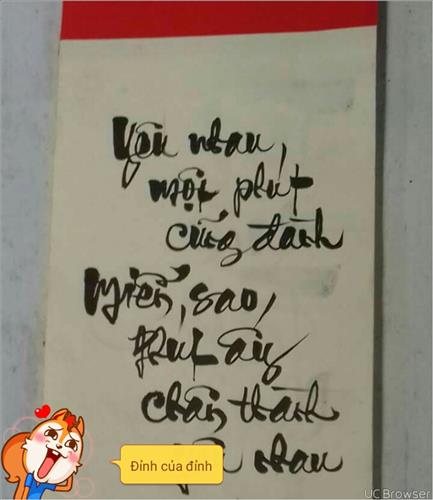 Yêu nhau,
một phút
cũng đành
Miễn, sao,
phút ấy
chân thành
nhau
Đỉnh của đỉnh
UC Browser